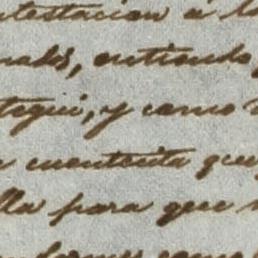 ntestacion á lo
nales, entiendo
tegui, y como
cuentita que
lla para que